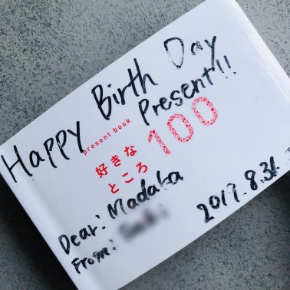 Happy Birth Day
Present!!
present book
好きな
ところ
100
Dear: Madaka
From:
2017.8.31.